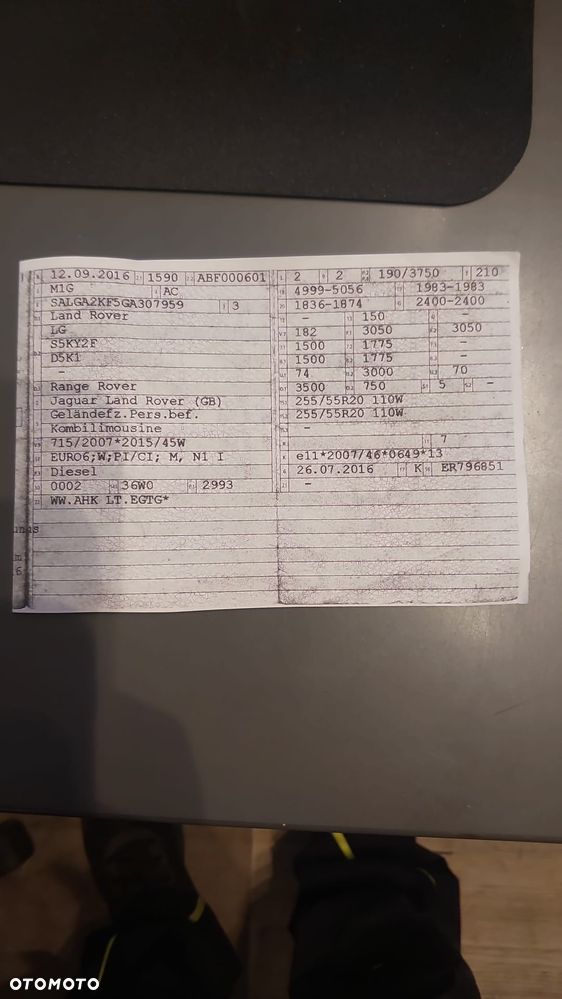 12.09.2016 1590 ABF000601
M1G AC
SALGA2KF5GA307959 3
Land Rover
LG
S5KY2F
D5K1
-
Range Rover
Jaguar Land Rover (GB)
Geländefz.Pers.bef.
Kombilimousine
715/2007*2015/45W
EURO6;W;PI/CI; M, N1 I
Diesel
0002 36W0 2993
WW.AHK LT.EGTG*
2 2 190/3750 210
4999-5056 1983-1983
1836-1874 2400-2400
- 150 -
182 3050 3050
1500 1775 -
1500 1775 -
74 3000 70
3500 750 5 -
255/55R20 110W
255/55R20 110W
-
7
e11*2007/46*0649*13
26.07.2016 K ER796851
-
OTOMOTO